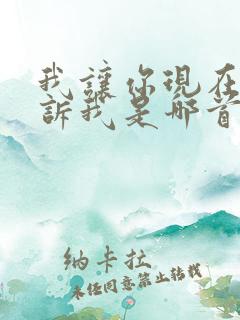 我讓你現在
訴我是哪首
納卡拉
未经同意禁止转载